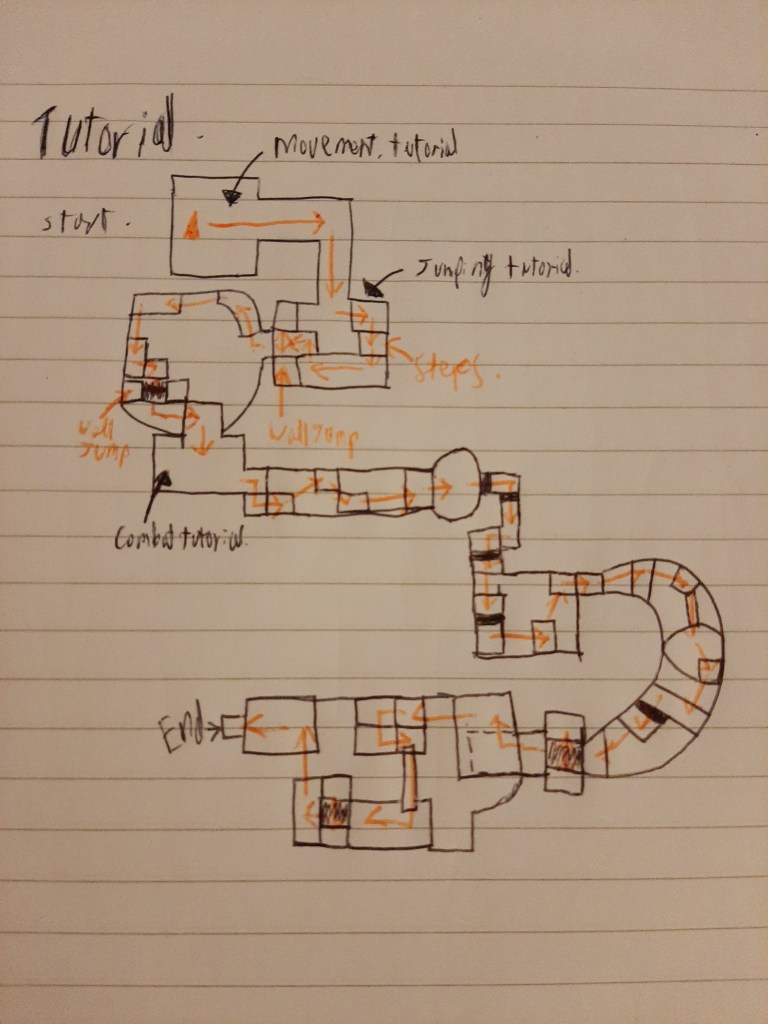 Tutorial.
Movement. tutorial
start.
Jumping tutorial.
steps.
Wall Jump
Wall Jump
Combat tutorial.
End